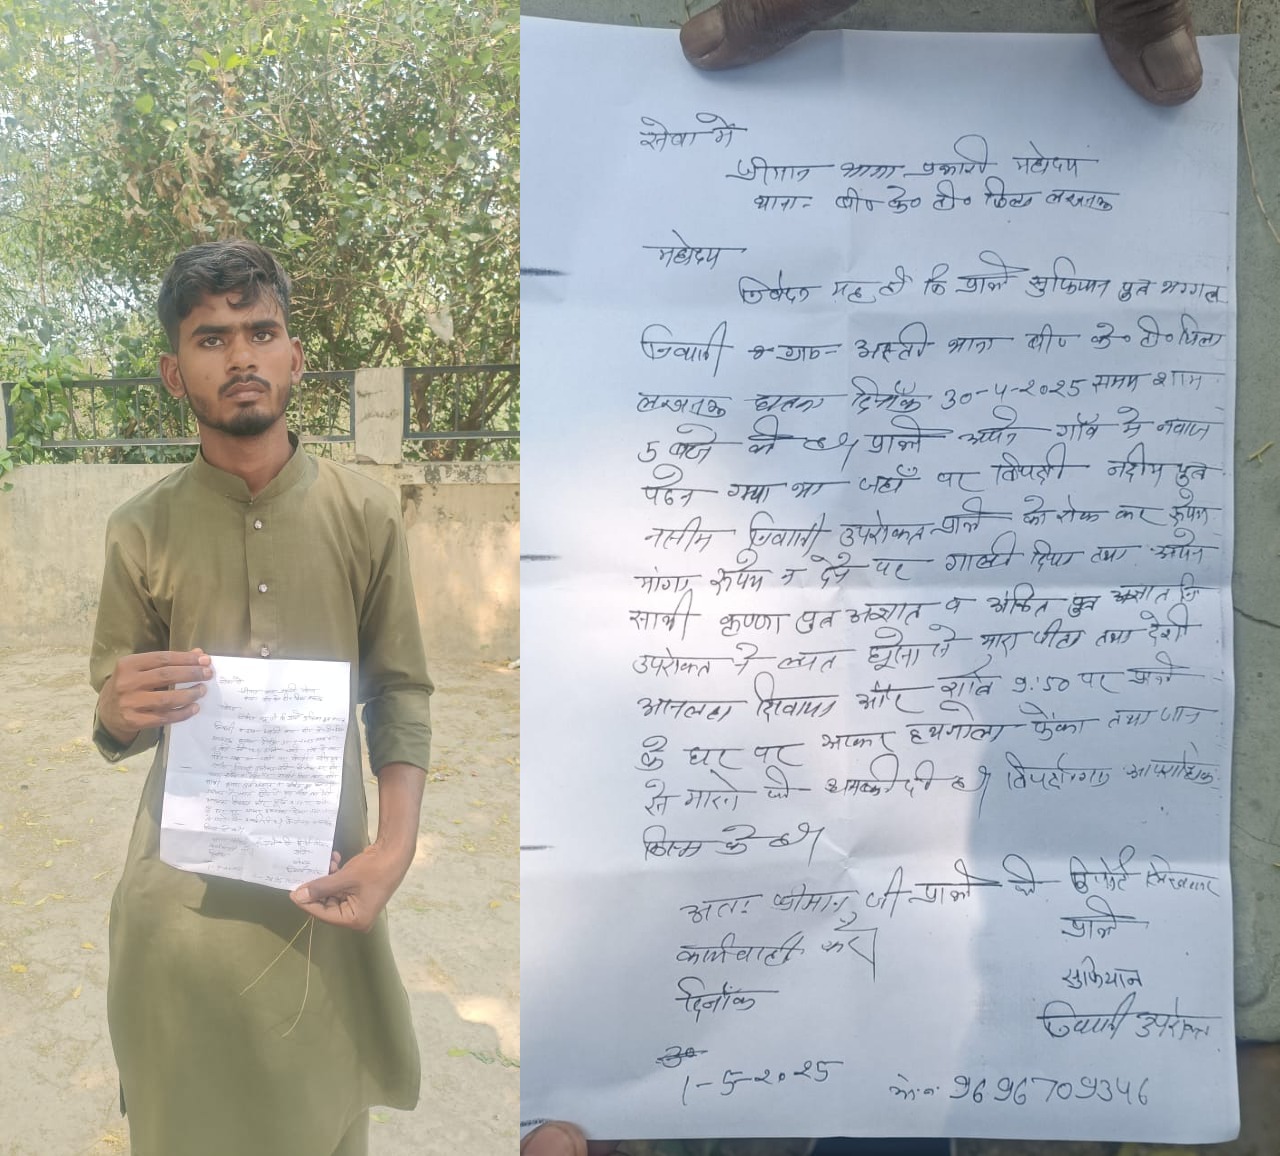 सेवा में
श्रीमान थाना प्रभारी महोदय
थाना- बी० के० टी० जिला लखनऊ
महोदय
निवेदन यह है कि प्रार्थी सुफियान पुत्र
निवासी ग्राम- अस्ती थाना बी० के० टी० जिला
लखनऊ घटना दिनाँक 30-4-2025 समय शाम
5 बजे की है। प्रार्थी अपने गाँव में नवाज
पढने गया था जहाँ पर विपक्षी नदीम पुत्र
नसीम निवासी उपरोक्त प्रार्थी को रोक कर रूपये
मांगा रूपये न देने पर गाली दिया तथा अपने
साथी कृष्णा पुत्र अज्ञात व अंकित पुत्र अज्ञात नि
उपरोक्त ने लात घूसों से मारा पीटा तथा देशी
असलहा दिखाया और रात्रि 9:50 पर प्रार्थी
के घर पर आकर हथगोला फेंका तथा जान
से मारने की धमकी दी है। विपक्षीगण आपराधिक
किस्म के है।
अतः श्रीमान् जी प्रार्थी की रिपोर्ट लिखकर
कार्यवाही करें।
प्रार्थी
सुफियान
निवासी उपरोक्त
दिनाँक
1-5-2025
मो० न० 9696709346